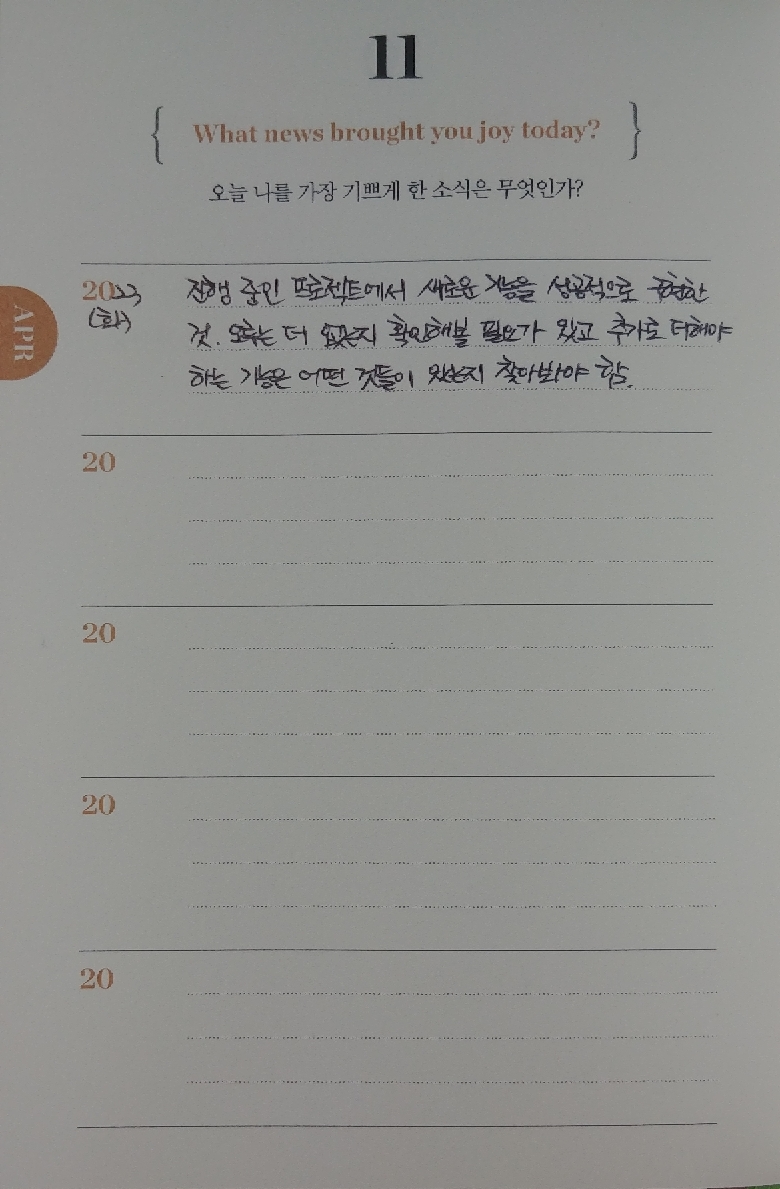 11
{ What news brought you joy today? }
오늘 나를 가장 기쁘게 한 소식은 무엇인가?
APR
2023 진행 중인 프로젝트에서 새로운 기능을 성공적으로 구현한
(화) 것. 오류는 더 없는지 확인해볼 필요가 있고 추가로 더해야
하는 기능은 어떤 것들이 있는지 찾아봐야 함.
20
20
20
20